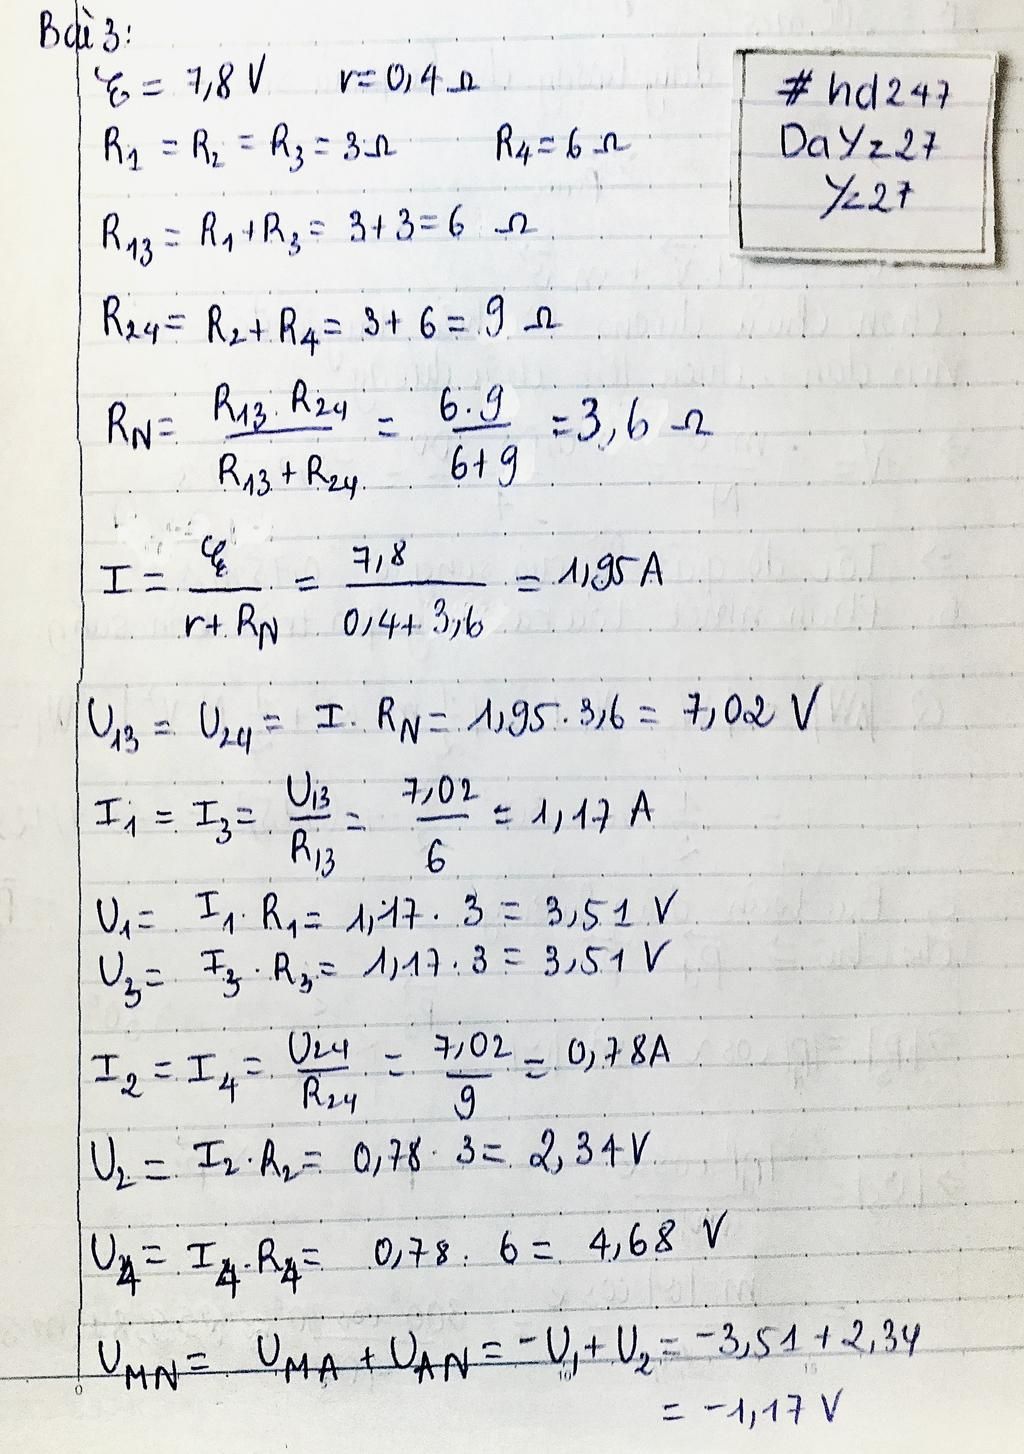 Bài 3:
ℰ = 7,8 V r = 0,4 Ω
R₁ = R₂ = R₃ = 3Ω R₄ = 6 Ω
# hd247
DaY=27
Y=27
R₁₃ = R₁ + R₃ = 3+3 = 6 Ω
R₂₄ = R₂ + R₄ = 3 + 6 = 9 Ω
R_N = (R₁₃ . R₂₄)/(R₁₃ + R₂₄) = (6 . 9)/(6+9) = 3,6 Ω
I = ℰ/(r + R_N) = 7,8/(0,4+3,6) = 1,95 A
U₁₃ = U₂₄ = I . R_N = 1,95 . 3,6 = 7,02 V
I₁ = I₃ = U₁₃/R₁₃ = 7,02/6 = 1,17 A
U₁ = I₁ . R₁ = 1,17 . 3 = 3,51 V
U₃ = I₃ . R₃ = 1,17 . 3 = 3,51 V
I₂ = I₄ = U₂₄/R₂₄ = 7,02/9 = 0,78A
U₂ = I₂ . R₂ = 0,78 . 3 = 2,34 V
U₄ = I₄ . R₄ = 0,78 . 6 = 4,68 V
U_MN = U_MA + U_AN = -U₁ + U₂ = -3,51 + 2,34
= -1,17 V